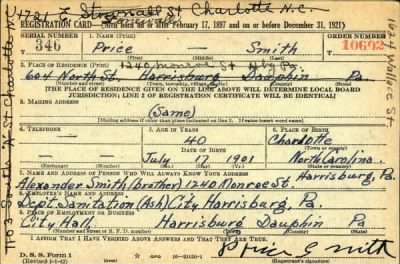 4724 E Stonewall St Charlotte N.C.
REGISTRATION CARD—(Men born on or after February 17, 1897 and on or before December 31, 1921)
SERIAL NUMBER 1. NAME (Print) ORDER NUMBER
346 Price — Smith 10602
(First) (Middle) (Last)
1240 Monroe St Hbg Pa.
2. PLACE OF RESIDENCE (Print)
604 North St. Harrisburg Dauphin Pa
[THE PLACE OF RESIDENCE GIVEN ON THE LINE ABOVE WILL DETERMINE LOCAL BOARD
JURISDICTION; LINE 2 OF REGISTRATION CERTIFICATE WILL BE IDENTICAL]
3. MAILING ADDRESS
(Same)
[Mailing address if other than place indicated on line 2. If same insert word same]
4. TELEPHONE 5. AGE IN YEARS 6. PLACE OF BIRTH
40 Charlotte
DATE OF BIRTH
July 17 1901 North Carolina
7. NAME AND ADDRESS OF PERSON WHO WILL ALWAYS KNOW YOUR ADDRESS Harrisburg, Pa.
Alexander Smith (brother) 1240 Monroe St.
8. EMPLOYER'S NAME AND ADDRESS
Dept. Sanitation (Ash) City Harrisburg, Pa.
9. PLACE OF EMPLOYMENT OR BUSINESS
City Hall, Harrisburg Dauphin Pa
I AFFIRM THAT I HAVE VERIFIED ABOVE ANSWERS AND THAT THEY ARE TRUE.
D. S. S. Form 1
(Revised 1-1-42) (over) GPO 16—21630-1
Price Smith
(Registrant's signature)
1624 Wallace St.